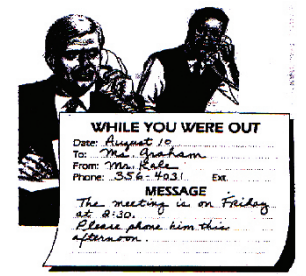 WHILE YOU WERE OUT
Date: August 10
To: Ms. Graham
From: Mr. Kale
Phone: 356-4031 Ext.
MESSAGE
The meeting is on Friday
at 2:30.
Please phone him this
afternoon.